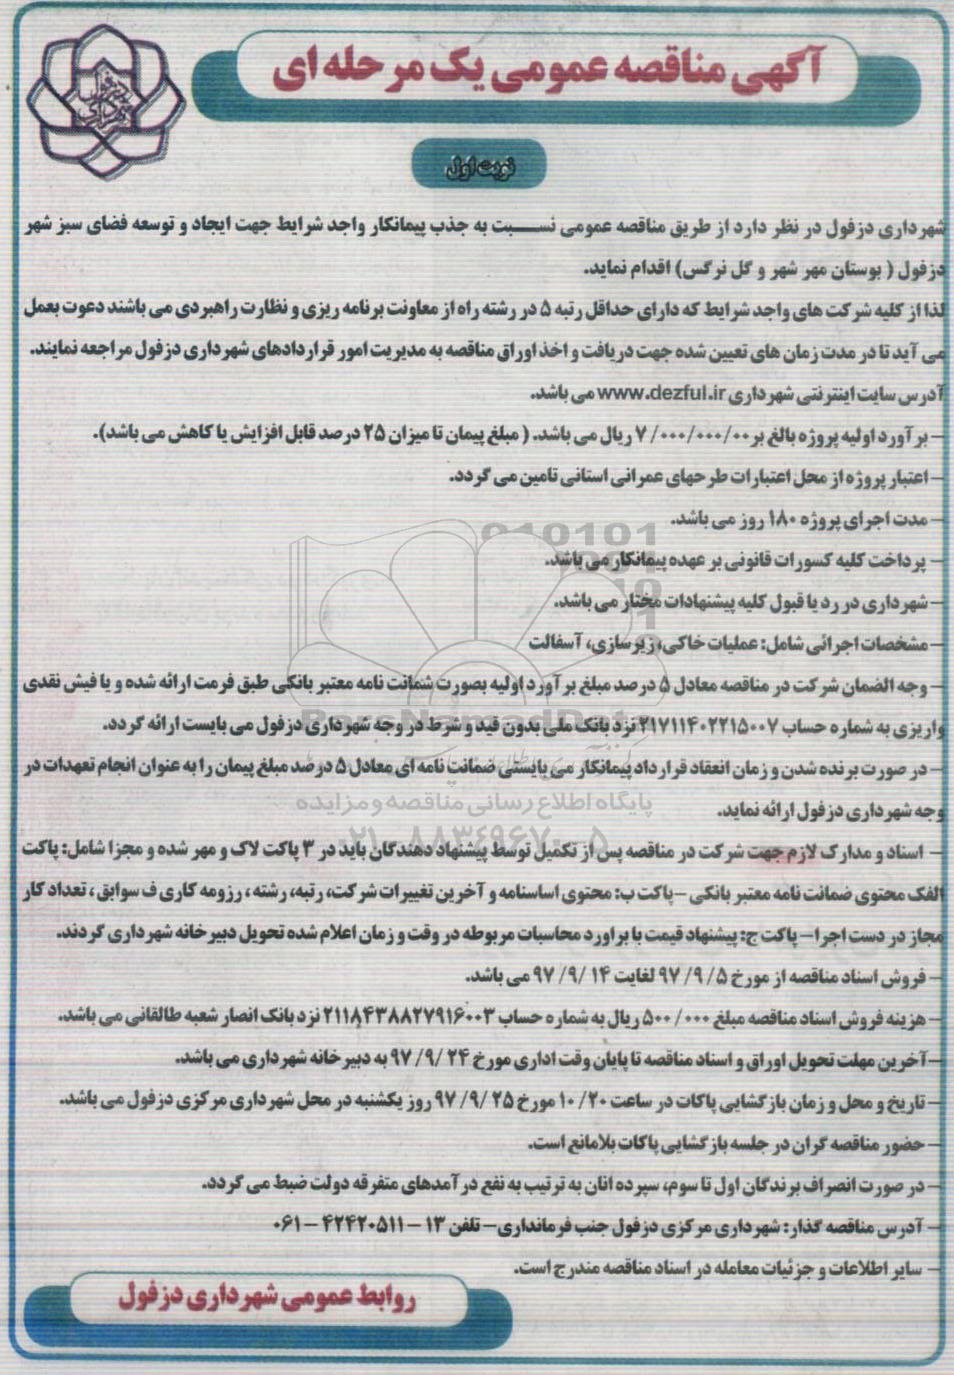 آگهی مناقصه عمومی یک مرحله ای
نوبت اول
شهرداری دزفول در نظر دارد از طریق مناقصه عمومی نسبت به جذب پیمانکار واجد شرایط جهت ایجاد و توسعه فضای سبز شهر
دزفول ( بوستان مهر شهر و گل نرگس) اقدام نماید.
لذا از کلیه شرکت های واجد شرایط که دارای حداقل رتبه ۵ در رشته راه از معاونت برنامه ریزی و نظارت راهبردی می باشند دعوت بعمل
می آید تا در مدت زمان های تعیین شده جهت دریافت و اخذ اوراق مناقصه به مدیریت امور قراردادهای شهرداری دزفول مراجعه نمایند.
آدرس سایت اینترنتی شهرداری www.dezful.ir می باشد.
– برآورد اولیه پروژه بالغ بر ۷/۰۰۰/۰۰۰/۰۰ ریال می باشد. ( مبلغ پیمان تا میزان ۲۵ درصد قابل افزایش یا کاهش می باشد).
– اعتبار پروژه از محل اعتبارات طرحهای عمرانی استانی تامین می گردد.
– مدت اجرای پروژه ۱۸۰ روز می باشد.
– پرداخت کلیه کسورات قانونی بر عهده پیمانکار می باشد.
– شهرداری در رد یا قبول کلیه پیشنهادات مختار می باشد.
– مشخصات اجرائی شامل: عملیات خاکی، زیرسازی، آسفالت
– وجه الضمان شرکت در مناقصه معادل ۵ درصد مبلغ برآورد اولیه بصورت ضمانت نامه معتبر بانکی طبق فرمت ارائه شده و یا فیش نقدی
واریزی به شماره حساب ۲۱۷۱۱۴۰۲۲۱۵۰۰۷ نزد بانک ملی بدون قید و شرط در وجه شهرداری دزفول می بایست ارائه گردد.
– در صورت برنده شدن و زمان انعقاد قرارداد پیمانکار می بایستی ضمانت نامه ای معادل ۵ درصد مبلغ پیمان را به عنوان انجام تعهدات در
وجه شهرداری دزفول ارائه نماید.
– اسناد و مدارک لازم جهت شرکت در مناقصه پس از تکمیل توسط پیشنهاد دهندگان باید در ۳ پاکت لاک و مهر شده و مجزا شامل: پاکت
الفک محتوی ضمانت نامه معتبر بانکی –پاکت ب: محتوی اساسنامه و آخرین تغییرات شرکت، رتبه، رشته ، رزومه کاری ف سوابق ، تعداد کار
مجاز در دست اجرا– پاکت ج: پیشنهاد قیمت با براورد محاسبات مربوطه در وقت و زمان اعلام شده تحویل دبیرخانه شهرداری گردند.
– فروش اسناد مناقصه از مورخ ۹۷/۹/۵ لغایت ۹۷/۹/۱۴ می باشد.
– هزینه فروش اسناد مناقصه مبلغ ۵۰۰/۰۰۰ ریال به شماره حساب ۲۱۱۸۴۳۸۸۲۷۹۱۶۰۰۳ نزد بانک انصار شعبه طالقانی می باشد.
–آخرین مهلت تحویل اوراق و اسناد مناقصه تا پایان وقت اداری مورخ ۹۷/۹/۲۴ به دبیرخانه شهرداری می باشد.
– تاریخ و محل و زمان بازگشایی پاکات در ساعت ۱۰/۲۰ مورخ ۹۷/۹/۲۵ روز یکشنبه در محل شهرداری مرکزی دزفول می باشد.
– حضور مناقصه گران در جلسه بازگشایی پاکات بلامانع است.
– در صورت انصراف برندگان اول تا سوم، سپرده انان به ترتیب به نفع درآمدهای متفرقه دولت ضبط می گردد.
– آدرس مناقصه گذار: شهرداری مرکزی دزفول جنب فرمانداری– تلفن ۱۳ – ۴۲۴۲۰۵۱۱ – ۰۶۱
– سایر اطلاعات و جزئیات معامله در اسناد مناقصه مندرج است.
روابط عمومی شهرداری دزفول
پایگاه اطلاع رسانی مناقصه و مزایده
۰۲۱-۸۸۳۴۹۶۷۰-۵